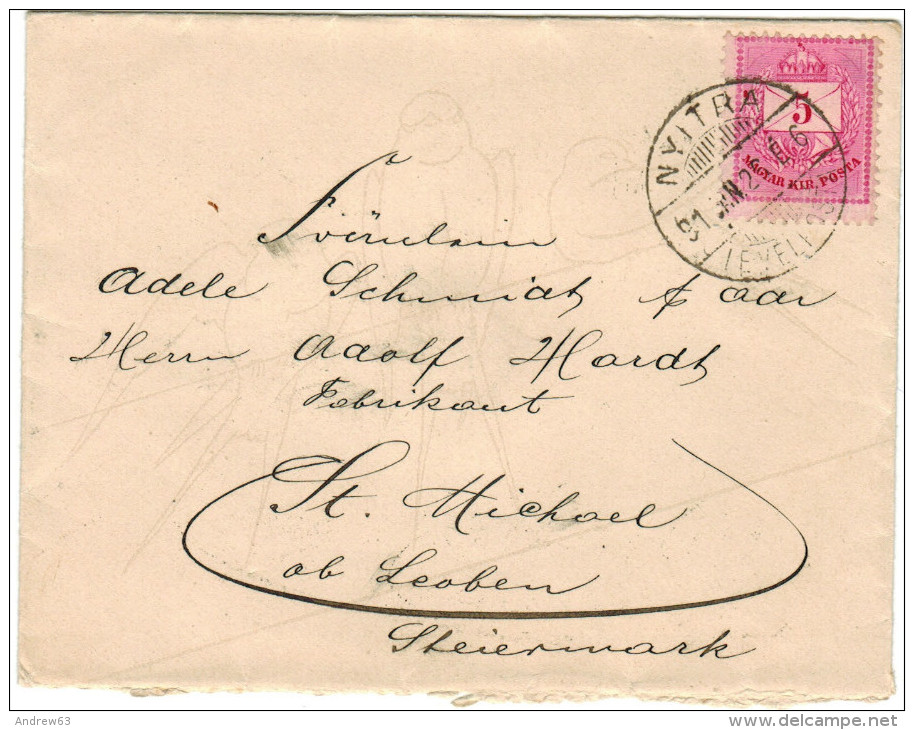 5
MAGYAR KIR. POSTA
NYITRA
91 JAN. 2
Fräulein
Adele Schmidt
Herrn Adolf Hardt
Fabrikant
St. Michael
ob Leoben
Steiermark
Andrew63
www.delcampe.net